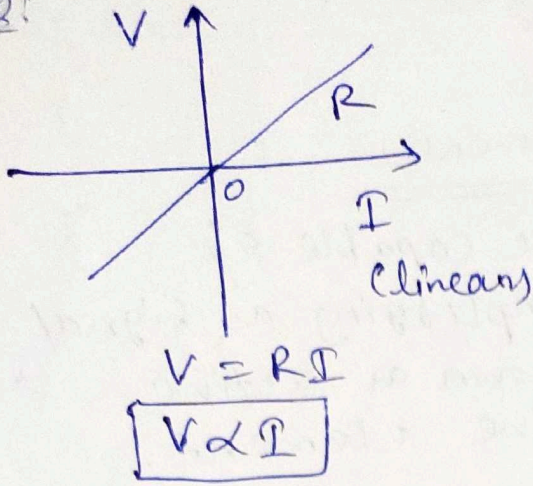 V
R
O
I
(linear)
V = RI
V ∝ I